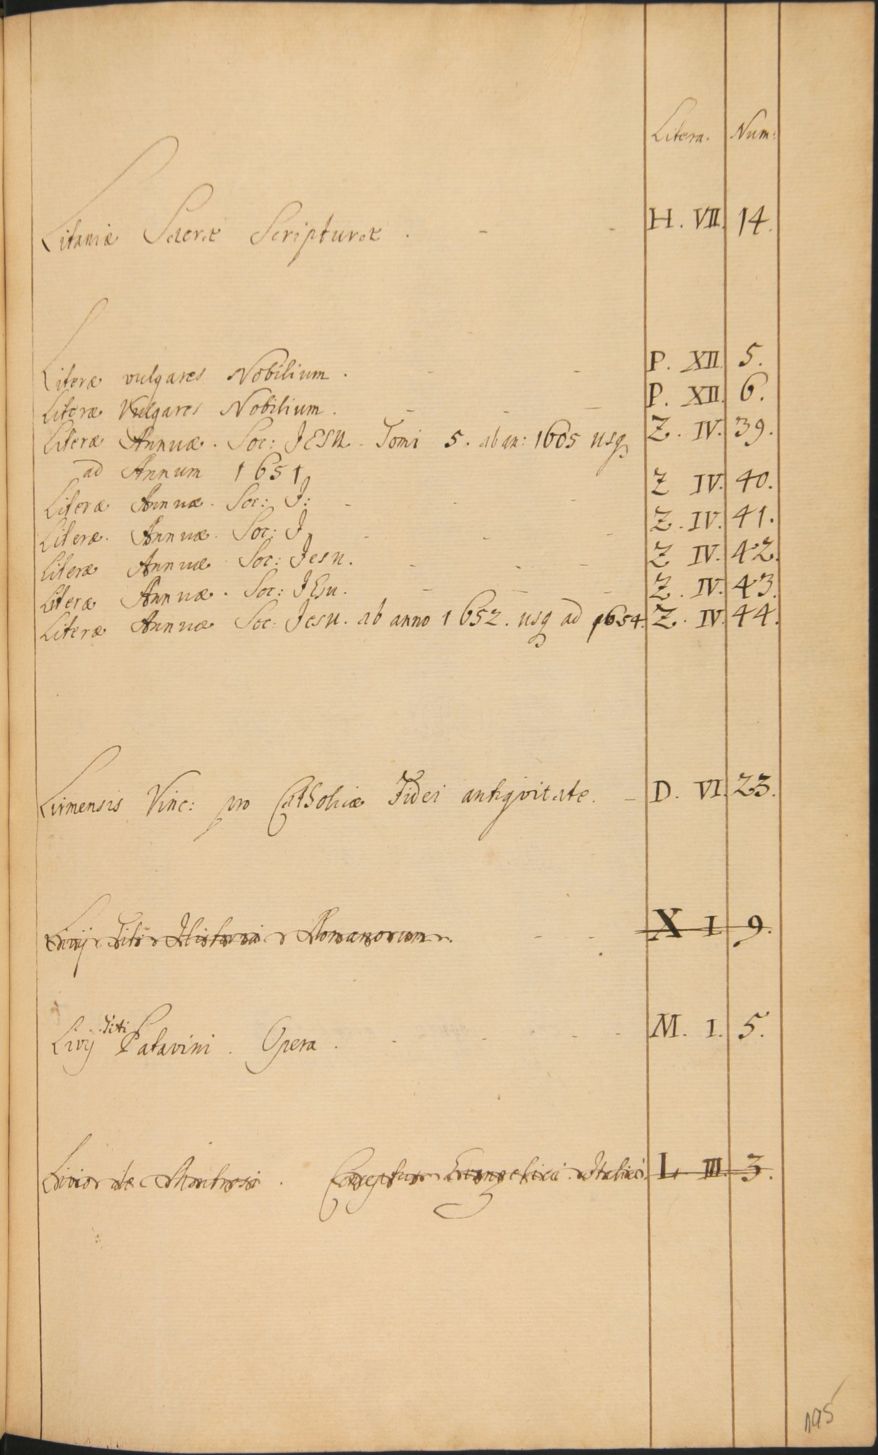 Litera. Num:
Litaniæ Sacræ Scripturæ . - - H. VII. 14.
Literæ vulgares Nobilium . - - P. XII. 5.
Literæ Vulgares Nobilium . - - - P. XII. 6.
Literæ Annuæ . Soc: JESU . Tomi 5. ab an: 1605 usq Z. IV. 39.
ad Annum 1651
Literæ Annuæ . Soc: J: - - - Z IV. 40.
Literæ . Annuæ . Soc: J . - - - Z. IV. 41.
Literæ Annuæ Soc: Jesu . - - - Z IV. 42.
Literæ Annuæ . Soc: JEsu . - - - Z. IV. 43.
Literæ Annuæ Soc: Jesu . ab anno 1652. usq ad 1654. Z. IV. 44.
Lirinensis Vinc: pro Catholicæ Fidei antiqvitate . - D. VI. 23.
Livij Titi Historia Romanorum . - - X I 9.
Livij Titi Patavini . Opera . - - - M. I. 5.
Conceptus Italici L. III. 3.
195